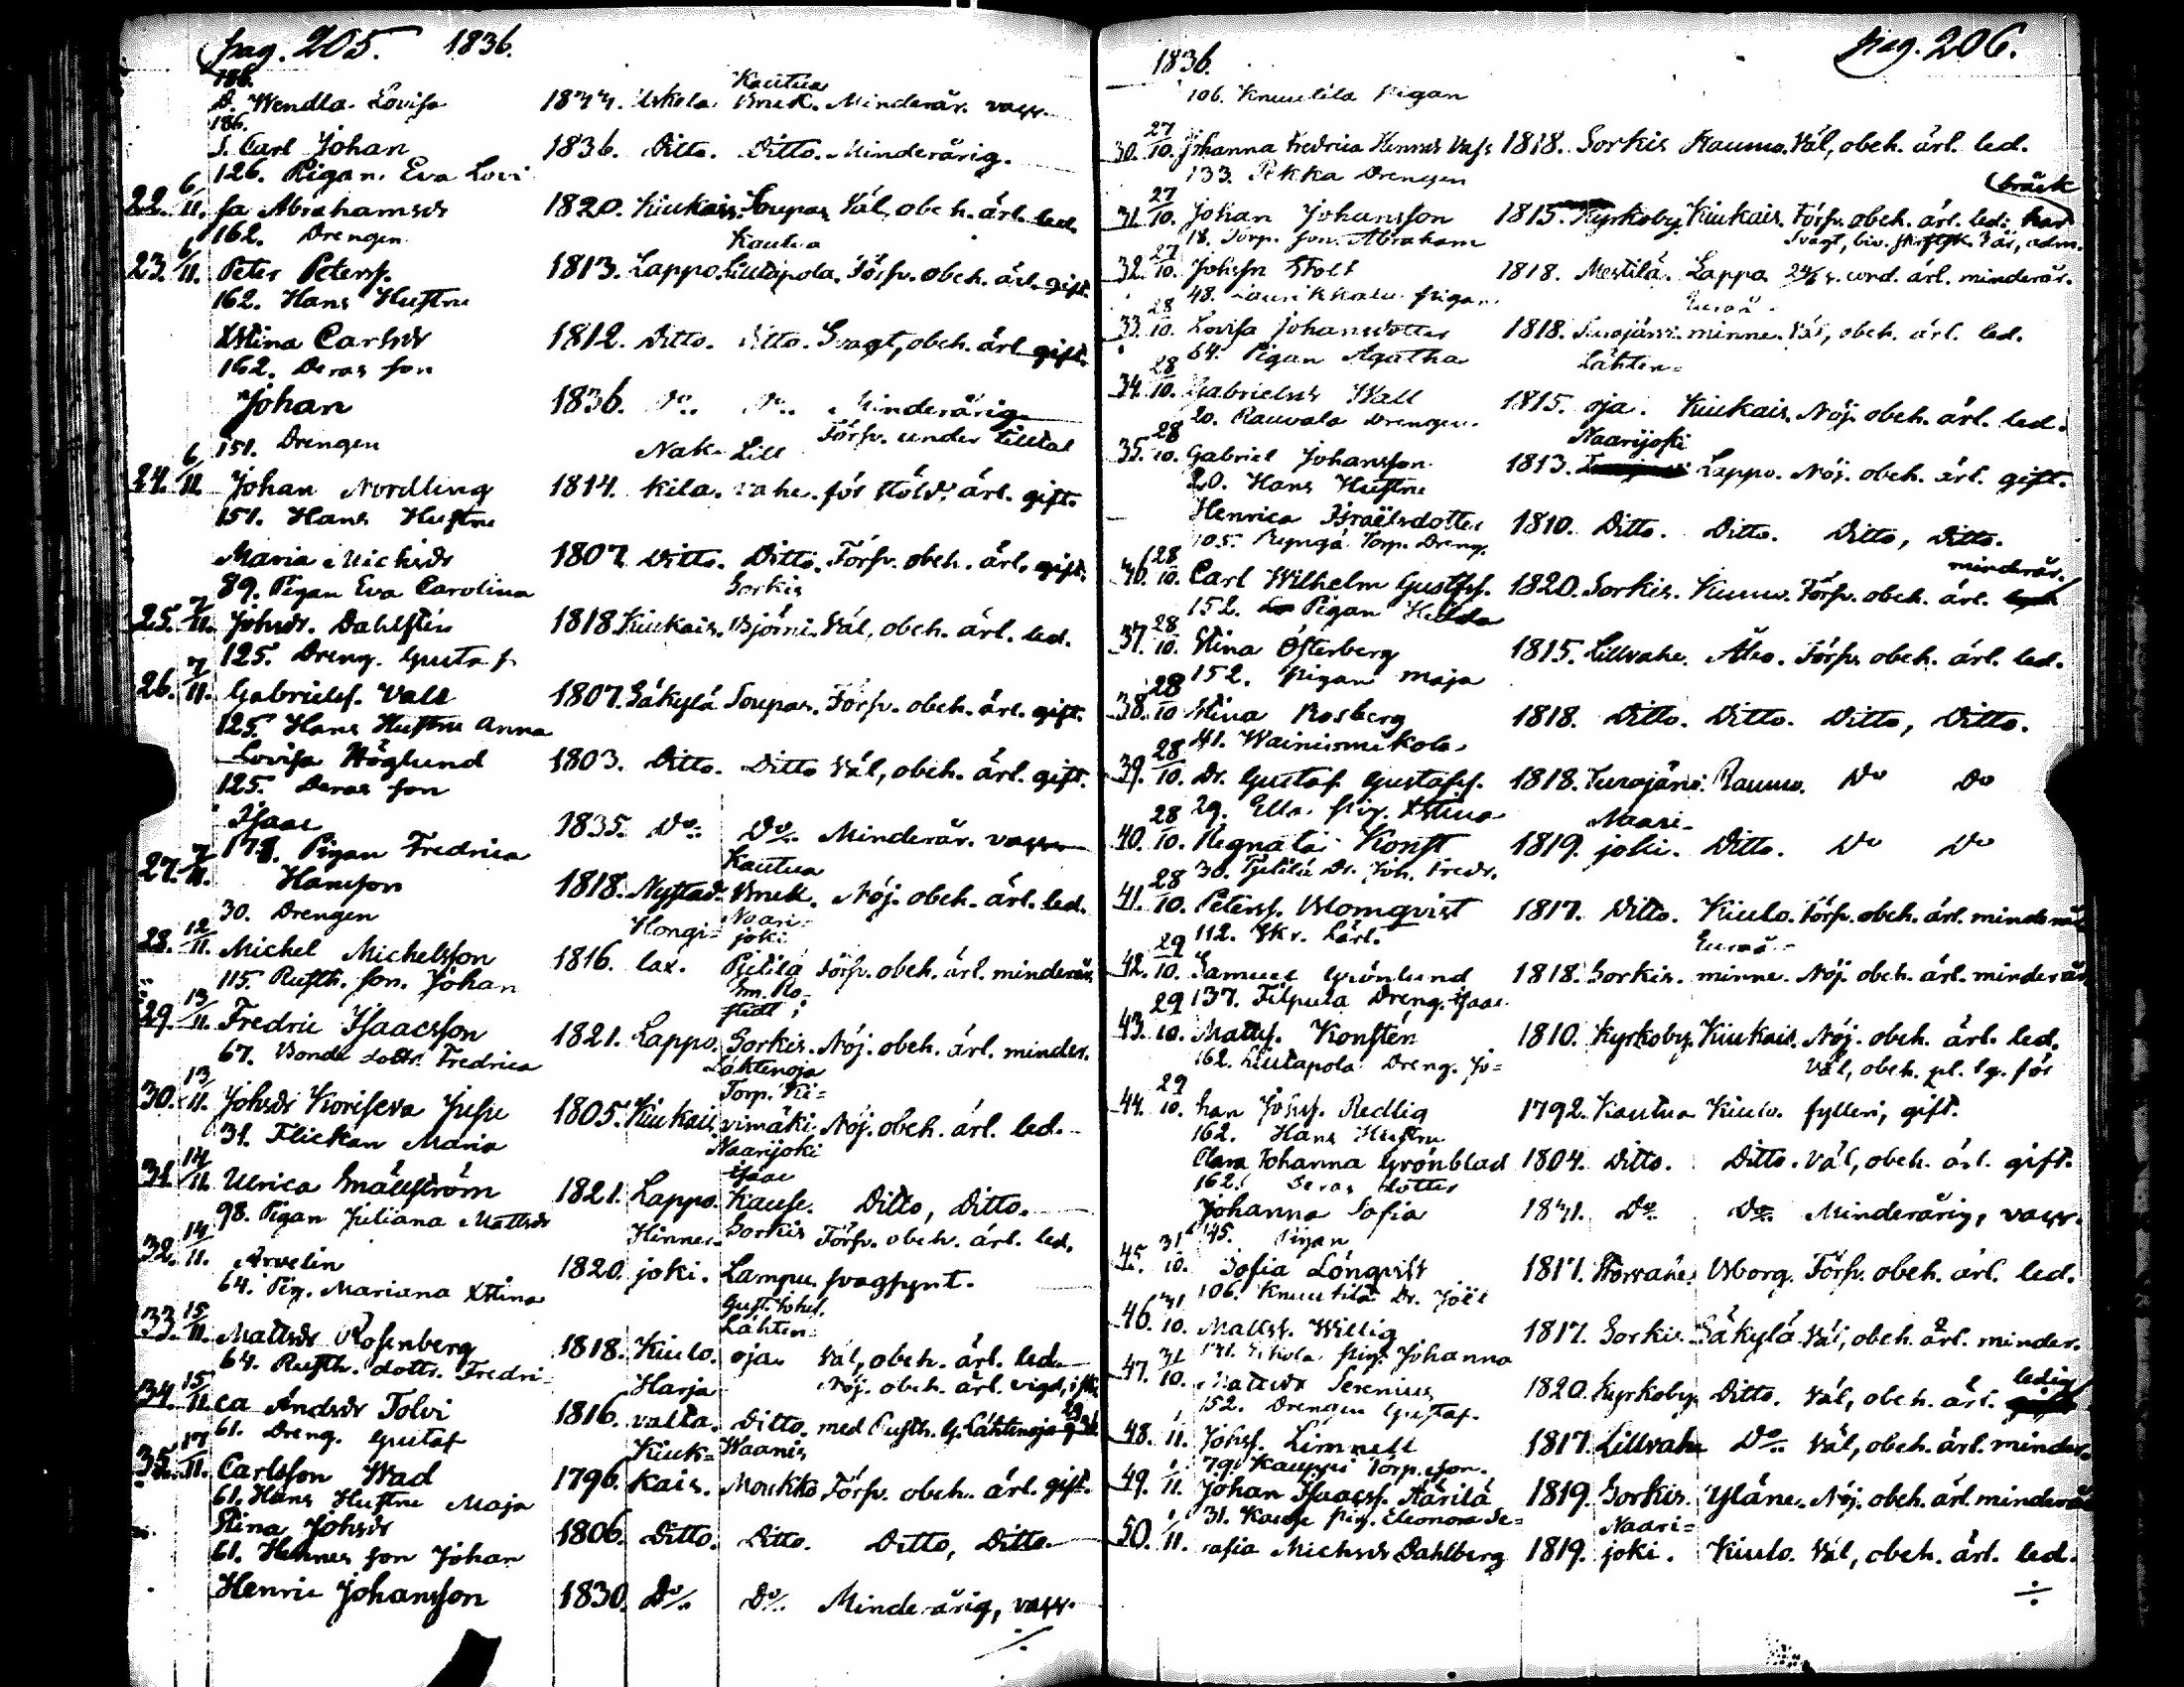 pag. 205. 1836.
186. Kautua
D. Wendla Lovisa 1834. Uskela Bruk. Minderår. vacc.
186.
S. Carl Johan 1836. Ditto. Ditto. Minderårig.
126. Pigan Eva Lovi
22. 6/11. sa Abrahamsdr 1820. Kiukais. Soupas Väl, obeh. ärl. led.
162. Drengen Kautua
23. 6/11. Peter Peterss. 1813. Lappo. Liutapola. Försv. obeh. ärl. gift.
162. Hans Hustru
Xstina Carlsdr 1812. Ditto. Ditto. Svagt, obeh. ärl. gift.
162. Deras son
Johan 1836. Do. Do. Minderårig.
151. Drengen Nak- Lill Försv. under tilltal
24. 6/11. Johan Nordling 1814. kila. vahe. för stöld. ärl. gift.
151. Hans Hustru
Maria Michsdr 1807. Ditto. Ditto. Försv. obeh. ärl. gift.
89. Pigan Eva Carolina Sorkis
25. 7/11. Johsdr. Dahlstén 1818. Kiukais. Björni. Väl, obeh. ärl. led.
125. Dreng. Gustaf
26. 7/11. Gabrielss. Vall 1807. Säkylä Soupas. Försv. obeh. ärl. gift.
125. Hans Hustru Anna
Lovisa Höglund 1803. Ditto. Ditto Väl, obeh. ärl. gift.
125. Deras son
Isaac 1835. Do. Do. Minderår. vacc.
178. Pigan Fredrica Kautua
27. 7/11. Hansson 1818. Nystad. Bruk. Nöj. obeh. ärl. led.
30. Drengen Hongi- Naari-joki
28. 12/11. Michel Michelsson 1816. lax. Pjelilä Försv. obeh. ärl. minderår.
115. Rusth. son. Johan Sm. Ro-stedt;
29. 13/11. Fredric Isaacsson 1821. Lappo. Sorkis. Nöj. obeh. ärl. minder.
67. Bonde dottr. Fredrica Lähtenoja
Torp. Ki-
30. 13/11. Johsdr Koriseva 1805. Kiukais. vimäki. Nöj. obeh. ärl. led.
31. Flickan Maria Naarijoki
Isaac
31. 14/11. Ulrica Smältström 1821. Lappo. Kause. Ditto, Ditto.
98. Pigan Juliana Mattsdr Hinner- Sorkis Försv. obeh. ärl. led.
32. 14/11. Arvelin 1820. joki. Lampu. svagsynt.
64. Pig. Mariana Xstina Gust. Johs. Lähten-
33. 15/11. Mattsdr Rosenberg 1818. Kiulo. oja. Väl, obeh. ärl. led.
64. Rusth. dottr. Fredri- Harja Nöj. obeh. ärl. vigd,
34. 15/11. ca Andsdr Tolvi 1816. valta. Ditto. med Rusth. G. Lähtenoja
61. Dreng. Gustaf Kiuk- Waanis
35. 17/11. Carlsson Wad 1796. kais. Moukko Försv. obeh. ärl. gift.
61. Hans Hustru Maja
Stina Johsdr 1806. Ditto. Ditto. Ditto, Ditto.
61. Hennes son Johan
Henric Johansson 1830. Do. Do. Minderårig, vacc.
1836. pag. 206.
106. Knuutila Pigan
30. 27/10. Johanna Fredrica Hennes 1818. Sorkis Raumo. Väl, obeh. ärl. led.
133. Pekka Drengen bräck
31. 27/10. Johan Johansson 1815. Kyrkoby. Kiukais. Försv. obeh. ärl. led. har
18. Torp. son. Abraham
32. 27/10. Johssn Stolt 1818. Mestilä. Lappo ärl. minderår.
48. pigan Eura-
33. 28/10. Lovisa Johansdotter 1818. Turajärvi. minne. Väl, obeh. ärl. led.
64. Pigan Agatha Lähten-
34. 28/10. Gabrielsdr Wall 1815. oja. Kiukais. Nöj. obeh. ärl. led.
20. Rauvola Drengen. Naarijoki
35. 28/10. Gabriel Johansson 1813. Lappo. Nöj. obeh. ärl. gift.
20. Hans Hustru
Henrica Israëlsdotter 1810. Ditto. Ditto. Ditto, Ditto.
105. Torp. Dreng. minderår.
36. 28/10. Carl Wilhelm Gustfss. 1820. Sorkis. Kiumo. Försv. obeh. ärl.
152. Pigan Hedda
37. 28/10. Stina Österberg 1815. Lillvahe. Åbo. Försv. obeh. ärl. led.
152. Pigan Maja
38. 28/10. Stina Rosberg 1818. Ditto. Ditto. Ditto, Ditto.
41. Wainiomikola
39. 28/10. Dr. Gustaf Gustafss. 1818. Turajärvi. Raumo. Do Do
29. Ella. Pig. Xstina Naari-
40. 28/10. Regnata Konst 1819. joki. Ditto. Do Do
30. Pjelilä Dr. Joh. Fredr.
41. 28/10. Peterss. Blomqvist 1817. Ditto. Kiulo. Försv. obeh. ärl.
112. Skr. Lärl. Eura-
42. 29/10. Samuel Grönlund 1818. Sorkis. minne. Nöj. obeh. ärl. minderår.
137. Filpula Dreng. Isaac
43. 29/10. Mattss. Konstén 1810. Kyrkoby. Kiukais. Nöj. obeh. ärl. led.
162. Liutapola Dreng. Jo- Väl, obeh. pl. lg. för
44. 29/10. han Johss. Redlig 1792. Kautua Kiulo. fylleri, gift.
162. Hans Hustru
Clara Johanna Grönblad 1804. Ditto. Ditto. Väl, obeh. ärl. gift.
162. Deras dotter
Johanna Sofia 1831. Do. Do. Minderårig, vacc.
145. Pigan
45. 31/10. Sofia Lönqvist 1817. Storvahe. Bborg. Försv. obeh. ärl. led.
106. Knuutila Dr. Joël
46. 31/10. Mattss. Willig 1817. Sorkis. Säkylä Väl, obeh. ärl. minder.
Pig. Johanna ledig
47. 31/10. Mattsdr Serenius 1820. Kyrkoby. Ditto. Väl, obeh. ärl.
152. Drengen Gustaf.
48. 1/11. Johss. Limnell 1817. Lillvahe Do. Väl, obeh. ärl. minder.
79. Kauppi Torp. son.
49. 1/11. Johan Isaacss. Äärilä 1819. Sorkis. Yläne. Nöj. obeh. ärl. minderår
31. Kause pig. Eleonora Se- Naari-
50. 1/11. rafia Michsdr Dahlberg 1819. joki. Kiulo. Väl, obeh. ärl. led.